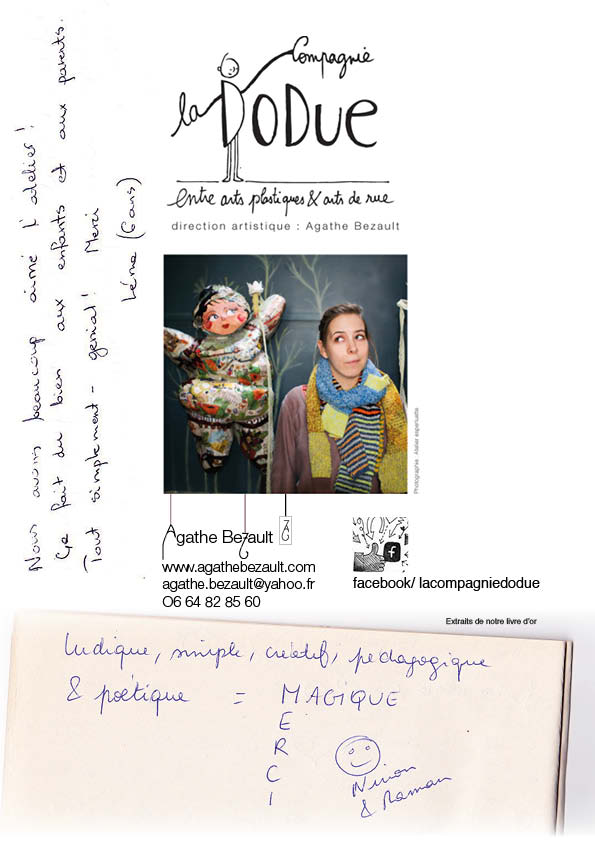 Compagnie
la DODUE
entre arts plastiques & arts de rue
direction artistique : Agathe Bezault
Nous avons beaucoup aimé l'atelier !
Ça fait du bien aux enfants et aux parents.
Tout simplement - génial ! Merci
(6 ans)
Photographie : Atelier
Agathe Bezault
www.agathebezault.com
agathe.bezault@yahoo.fr
O6 64 82 85 60
f
facebook/ lacompagniedodue
Extraits de notre livre d'or
ludique, simple, créatif, pédagogique
& poétique = MAGIQUE
E
R
C
I
Ninon
& Maman